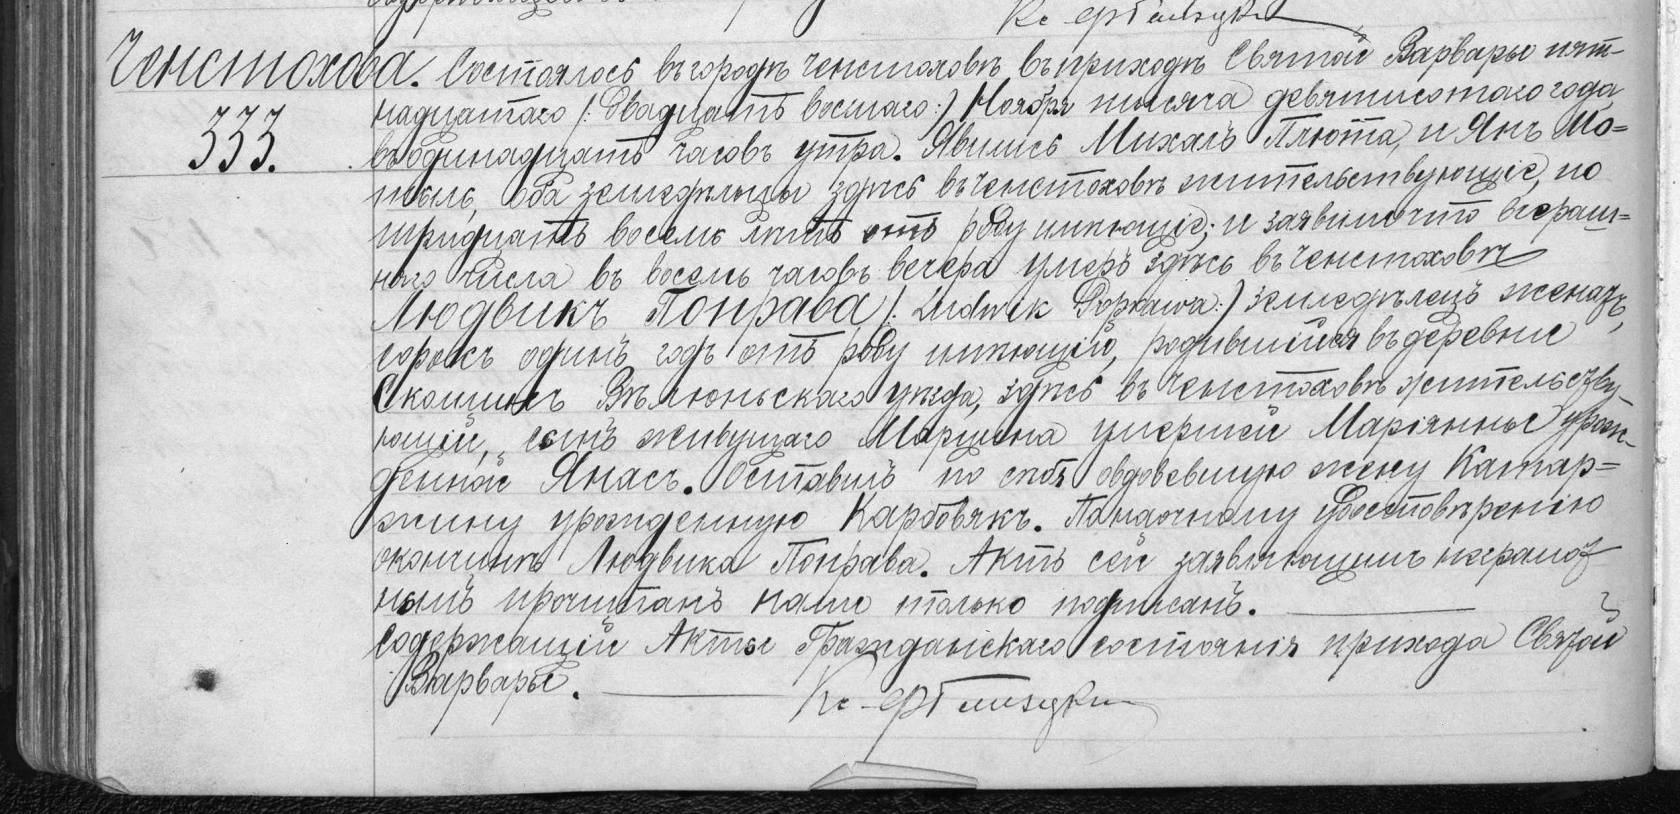 Кс. ФГ
Ченстохова. Состоялось въ городѣ Ченстоховѣ въ приходѣ Святой Варвары пят-
333. надцатаго (: двадцать восмаго :) Ноября тысяча девятисотаго года
въ одинадцать часовъ утра. Явились Михалъ Плюта, и Янъ Мо-
тыль, оба земледѣльцы здѣсь въ Ченстоховѣ жительствующіе, по
тридцать восемь лѣтъ отъ роду имѣющіе; и заявили что вчераш=
няго числа въ восемь часовъ вечера умеръ здѣсь въ Ченстоховѣ
Людвикъ Поправа (: Ludwik Poprawa :) земледѣлецъ женатъ,
сорокъ одинъ годъ отъ роду имѣющій, родившійся въ деревне
Скомлинъ Вѣлюньскаго уѣзда, здѣсь въ Ченстоховѣ жительству-
ющій, сынъ живущаго Марцина умершей Маріянны урож-
денной Янасъ. Оставилъ по себѣ овдовевшую жену Катар=
жину урожденную Карбовякъ. По наочному удостовѣренію
окончинѣ Людвика Поправа. Актъ сей заявляющимъ неграмот
нымъ прочитанъ нами только подписанъ.
Содержащій Акты Гражданскаго состоянія прихода Святой
Варвары. Кс. ФГ